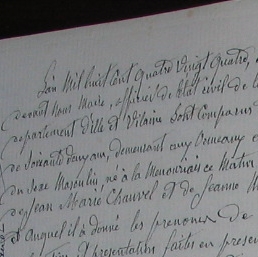 L'an Mil huit Cent Quatre Vingt Quatre,
devant Nous Maire, officier de l'Etat civil de
Departement d'Ille et Vilaine sont Comparus
de Soixante Douze ans, demeurant aux
du Sexe Masculin, né à la ce Matin
de Jean Marie Chauvel et de Jeanne
et auquel il a donné les prénoms de
et présentation faites en